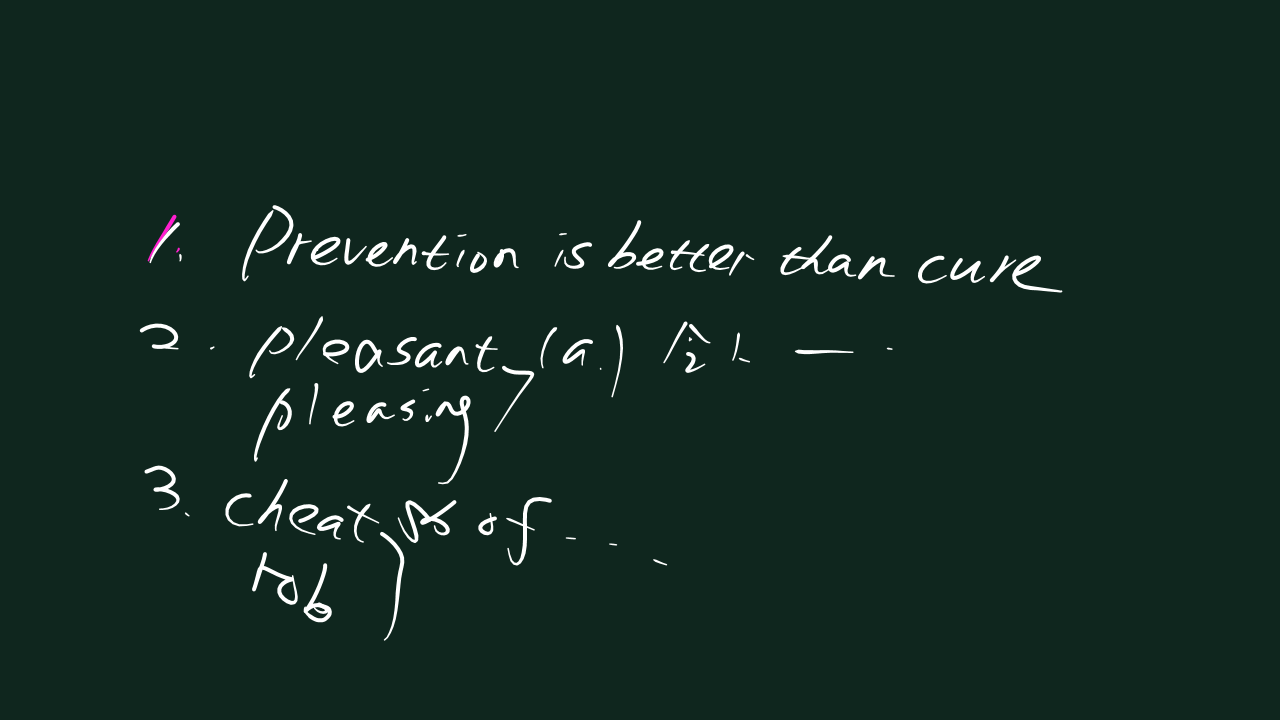 1. Prevention is better than cure
2. pleasant (a.)
pleasing
3. cheat of ...
rob